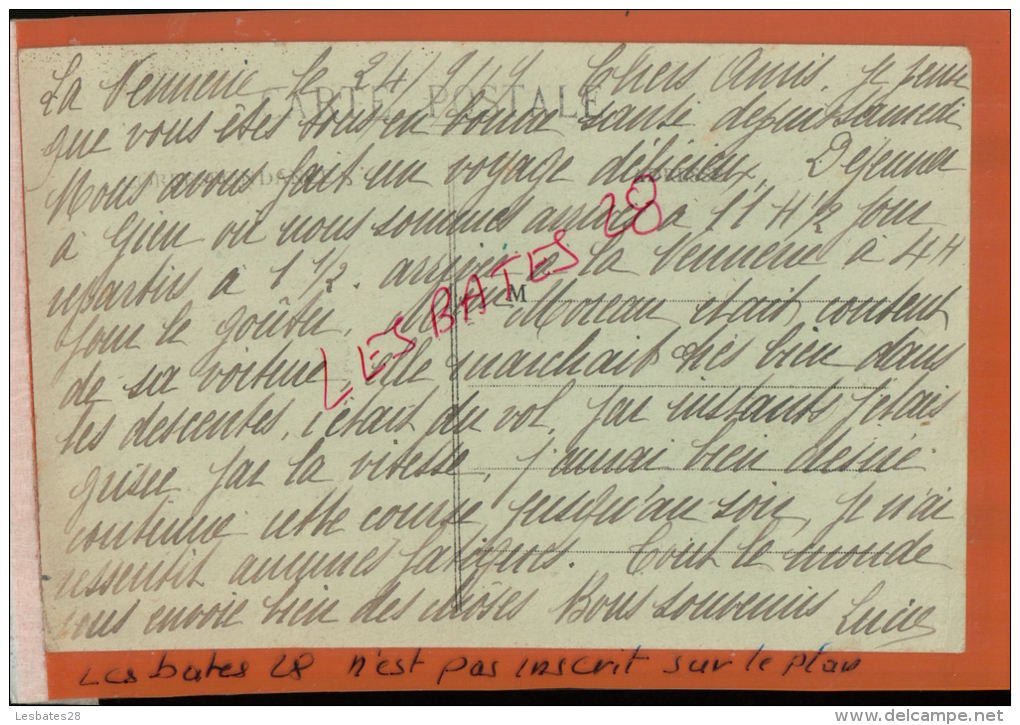 La Vennerie le 24/9/14 Chers Amis. je pense
CARTE POSTALE
que vous êtes tous en bonne santé depuis samedi
CORRESPONDANCE
Nous avons fait un voyage délicieux. Déjeuner
à Gien où nous sommes arrivés à 11 H ½ pour
repartir à 1 ½. arrivée à la Vennerie à 4 H
LES BATES 28
M
pour le goûter. Moreau était content
de sa voiture, elle marchait très bien dans
les descentes, c'était du vol, par instants j'étais
grisée par la vitesse, j'aurai bien désiré
continuer cette course jusqu'au soir, je n'ai
ressentit aucunes fatigues. Tout le monde
vous envoie bien des chôses Bons souvenirs Lucie
Les bates 28 n'est pas inscrit sur le plan
Lesbates28
www.delcampe.net